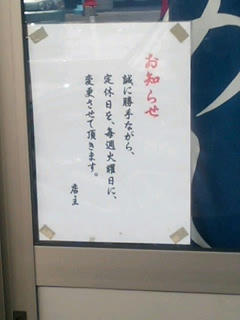 お知らせ
誠に勝手ながら、
定休日を、毎週火曜日に、
変更させて頂きます。
店主